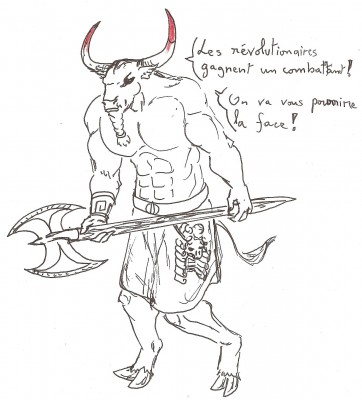 Les révolutionaires
gagnent un combattant!
On va vous pourrire
la face!